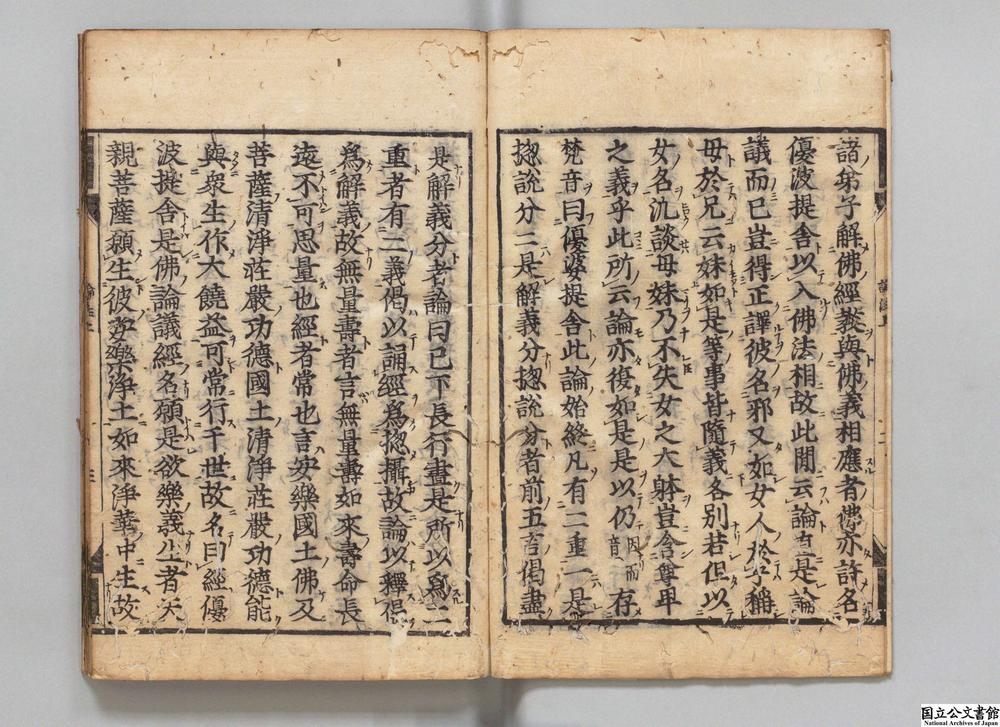 諸弟子解佛經教與佛義相應者佛亦許名
優波提舍以入佛法相故此間云論直是論
議而已豈得正譯彼名邪又如女人於子稱
母於兄云妹如是等事皆隨義各別若但以
女名汎談母妹乃不失女之大躰豈含尊卑
之義乎此所云論亦復如是是以仍音因而存
梵音曰優婆提舍此論始終凡有二重一是
揔說分二是解義分揔說分者前五言偈盡
是解義分者論曰已下長行盡是所以爲二
重者有二義偈以誦經爲揔攝故論以釋偈
爲解義故無量壽者言無量壽如來壽命長
遠不可思量也經者常也言安樂國土佛及
菩薩清淨莊嚴功德國土清淨莊嚴功德能
與衆生作大饒益可常行于世故名曰經優
波提舍是佛論議經名願是欲樂義生者天
親菩薩願生彼安樂淨土如來淨華中生故
国立公文書館
National Archives of Japan